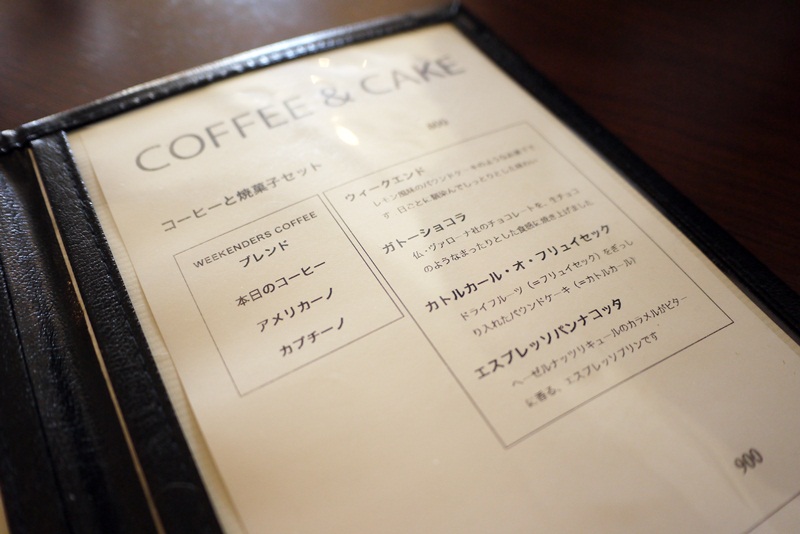 COFFEE & CAKE
コーヒーと焼菓子セット
800
WEEKENDERS COFFEE
ブレンド
本日のコーヒー
アメリカーノ
カプチーノ
ウィークエンド
レモン風味のパウンドケーキのようなお菓子で
す 日ごとに馴染んでしっとりとした味わい
ガトーショコラ
仏・ヴァローナ社のチョコレートを、生チョコ
のようなまったりとした食感に焼き上げました
カトルカール・オ・フリュイセック
ドライフルーツ（=フリュイセック）をぎっし
り入れたパウンドケーキ（=カトルカール）
エスプレッソパンナコッタ
ヘーゼルナッツリキュールのカラメルがビター
に香る、エスプレッソプリンです
900